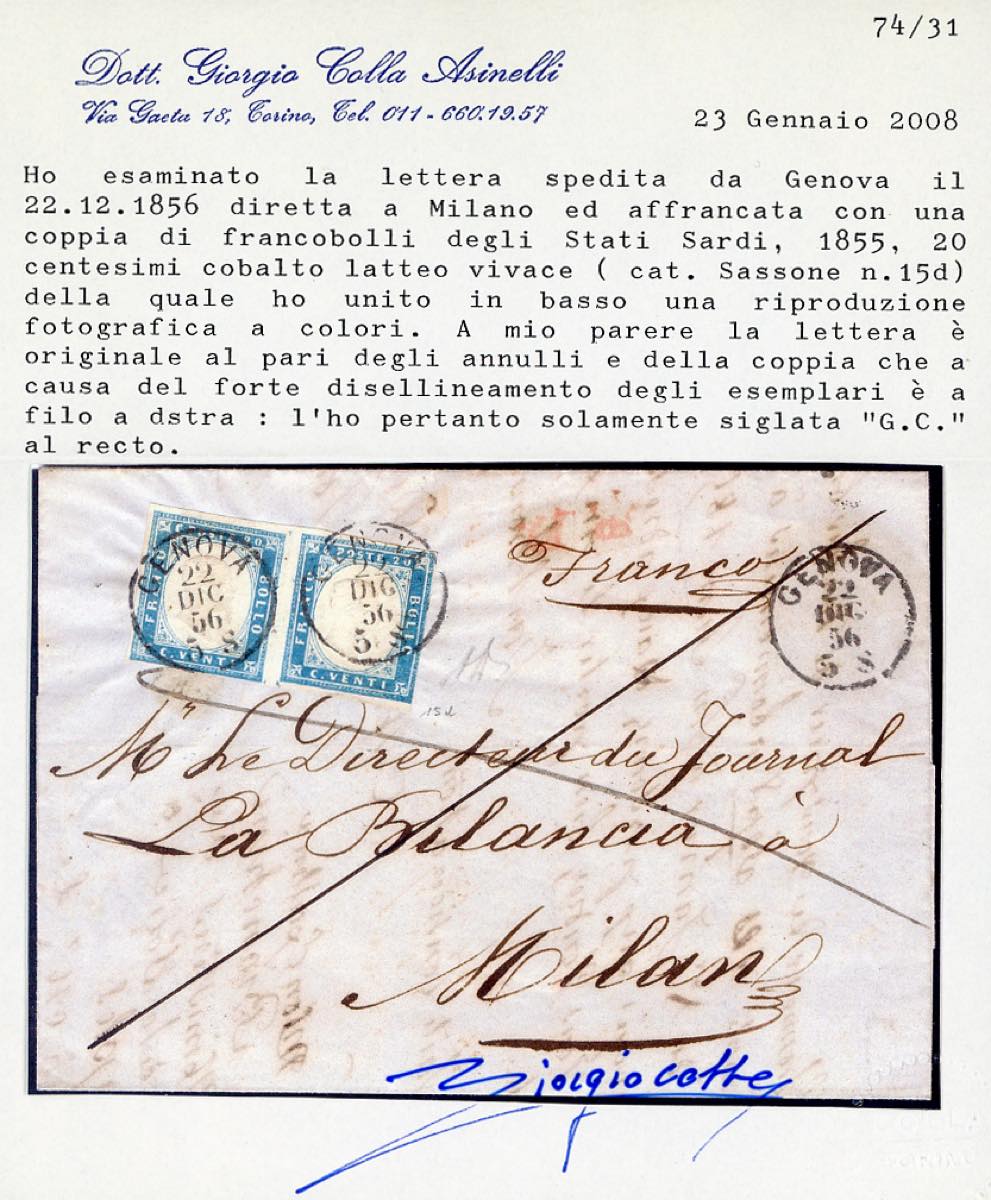 74/31
Dott. Giorgio Colla Asinelli
Via Gaeta 18, Torino, Tel. 011-660.19.57
23 Gennaio 2008
Ho esaminato la lettera spedita da Genova il
22.12.1856 diretta a Milano ed affrancata con una
coppia di francobolli degli Stati Sardi, 1855, 20
centesimi cobalto latteo vivace ( cat. Sassone n.15d)
della quale ho unito in basso una riproduzione
fotografica a colori. A mio parere la lettera è
originale al pari degli annulli e della coppia che a
causa del forte disellineamento degli esemplari è a
filo a dstra : l'ho pertanto solamente siglata "G.C."
al recto.
GENOVA
22
DIC
56
5 S
BOLLO
C. VENTI
POSTE 20
22
DIC
56
5 S
C. VENTI
Franco
GENOVA
22
DIC
56
5 S
15d
Mr Le Directeur du Journal
La Bilancia à
Milan
Giorgio Colla